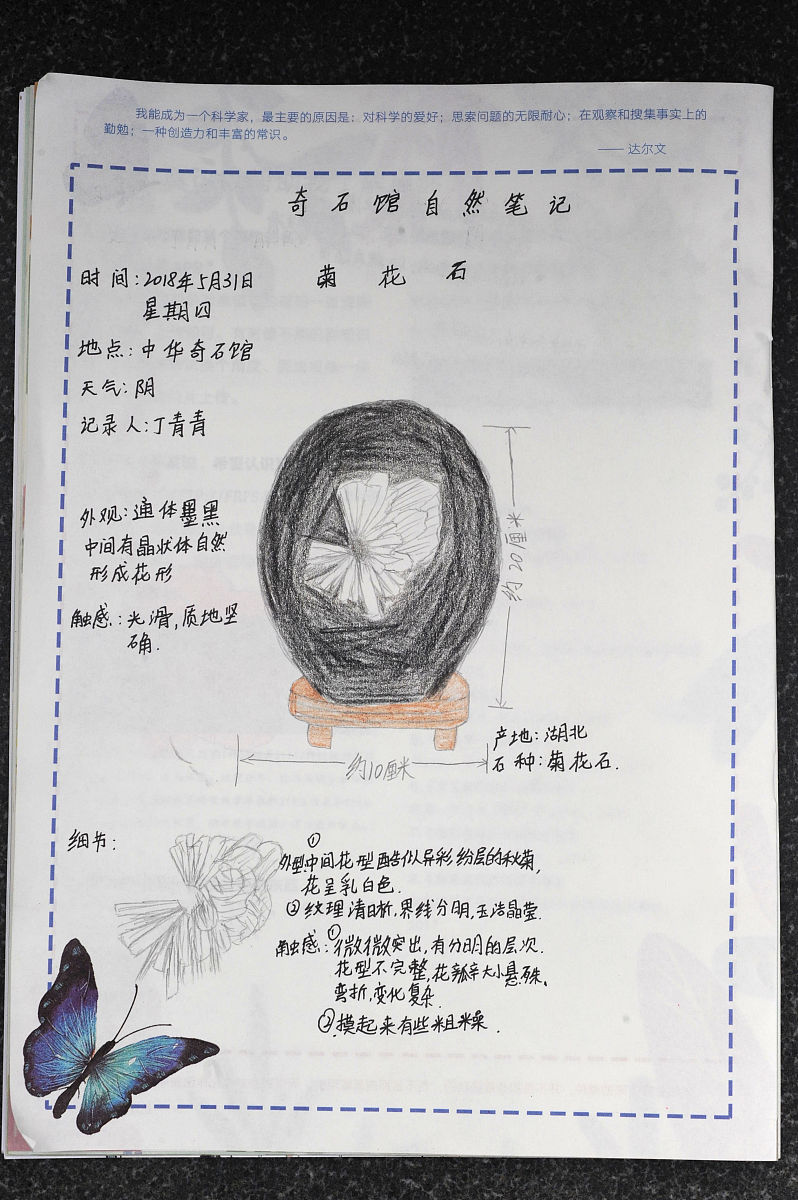 我能成为一个科学家，最主要的原因是：对科学的爱好；思索问题的无限耐心；在观察和搜集事实上的
勤勉；一种创造力和丰富的常识。
—— 达尔文
奇石馆自然笔记
时间:2018年5月31日
菊花石
星期四
地点:中华奇石馆
天气:阴
记录人:丁青青
外观:通体墨黑
中间有晶状体自然
形成花形
触感:光滑,质地坚
确.
约20厘米
约10厘米
产地:湖北
石种:菊花石.
细节:
①
外型:中间花型酷似异彩纷层的秋菊,
花呈乳白色.
②纹理清晰,界线分明,玉洁晶莹.
触感:①微微突出,有分明的层次.
花型不完整,花瓣大小悬殊、
弯折,变化复杂.
②摸起来有些粗糙.